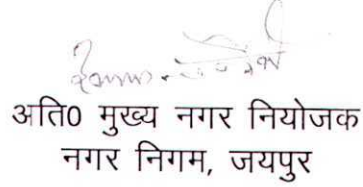 अति0 मुख्य नगर नियोजक
नगर निगम, जयपुर